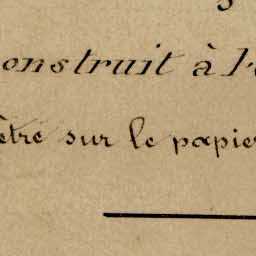 onstruit à l'
ètre sur le papier